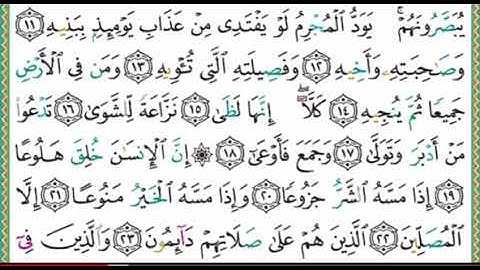 يُبَصَّرُونَهُمْ ۚ يَوَدُّ ٱلْمُجْرِمُ لَوْ يَفْتَدِى مِنْ عَذَابِ يَوْمِئِذٍۭ بِبَنِيهِ ١١
وَصَٰحِبَتِهِۦ وَأَخِيهِ ١٢ وَفَصِيلَتِهِ ٱلَّتِى تُـْٔوِيهِ ١٣ وَمَن فِى ٱلْأَرْضِ
جَمِيعًا ثُمَّ يُنجِيهِ ١٤ كَلَّآ ۖ إِنَّهَا لَظَىٰ ١٥ نَزَّاعَةً لِّلشَّوَىٰ ١٦ تَدْعُوا۟
مَنْ أَدْبَرَ وَتَوَلَّىٰ ١٧ وَجَمَعَ فَأَوْعَىٰٓ ١٨ ۞ إِنَّ ٱلْإِنسَٰنَ خُلِقَ هَلُوعًا
١٩ إِذَا مَسَّهُ ٱلشَّرُّ جَزُوعًا ٢٠ وَإِذَا مَسَّهُ ٱلْخَيْرُ مَنُوعًا ٢١ إِلَّا
ٱلْمُصَلِّينَ ٢٢ ٱلَّذِينَ هُمْ عَلَىٰ صَلَاتِهِمْ دَآئِمُونَ ٢٣ وَٱلَّذِينَ فِىٓ